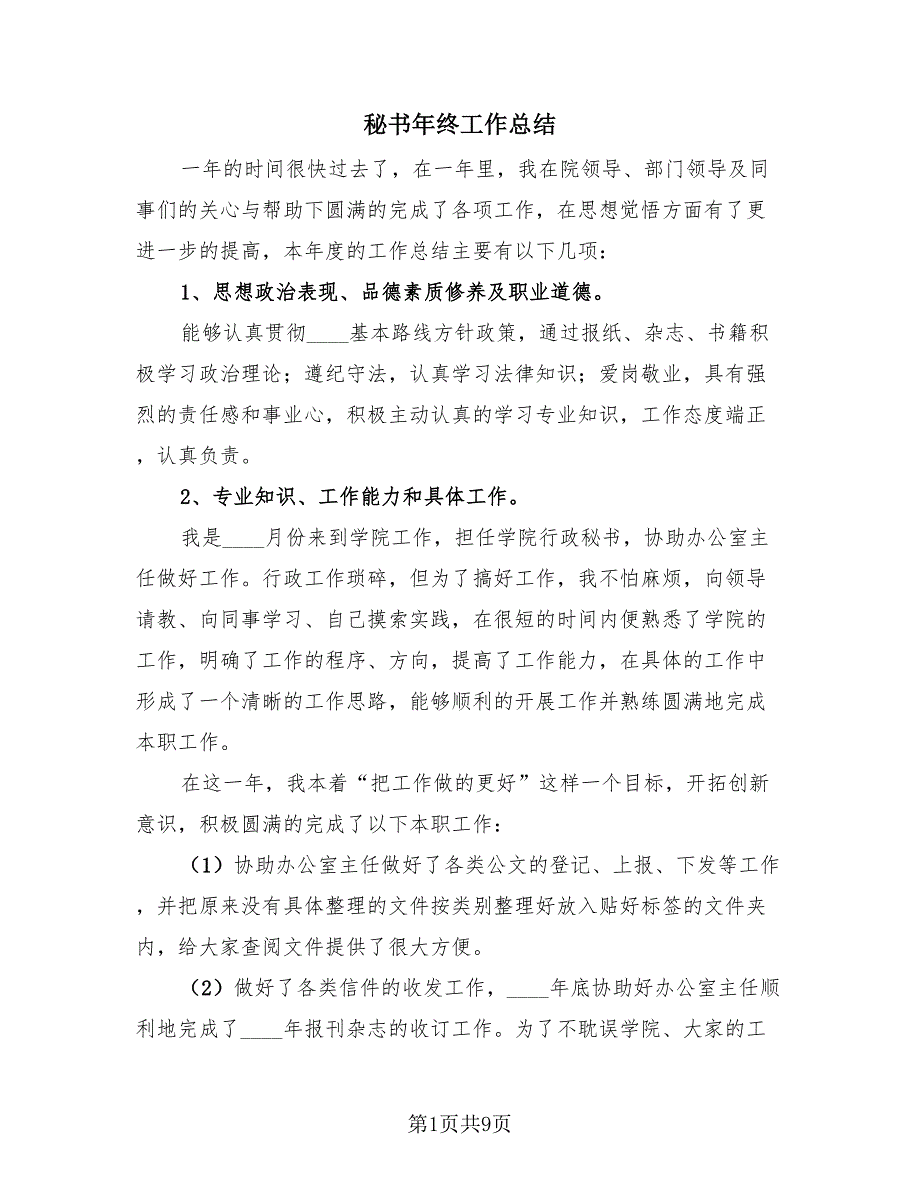 秘书年终工作总结
一年的时间很快过去了，在一年里，我在院领导、部门领导及同
事们的关心与帮助下圆满的完成了各项工作，在思想觉悟方面有了更
进一步的提高，本年度的工作总结主要有以下几项：
1、思想政治表现、品德素质修养及职业道德。
能够认真贯彻____基本路线方针政策，通过报纸、杂志、书籍积
极学习政治理论；遵纪守法，认真学习法律知识；爱岗敬业，具有强
烈的责任感和事业心，积极主动认真的学习专业知识，工作态度端正
，认真负责。
2、专业知识、工作能力和具体工作。
我是____月份来到学院工作，担任学院行政秘书，协助办公室主
任做好工作。行政工作琐碎，但为了搞好工作，我不怕麻烦，向领导
请教、向同事学习、自己摸索实践，在很短的时间内便熟悉了学院的
工作，明确了工作的程序、方向，提高了工作能力，在具体的工作中
形成了一个清晰的工作思路，能够顺利的开展工作并熟练圆满地完成
本职工作。
在这一年，我本着“把工作做的更好”这样一个目标，开拓创新
意识，积极圆满的完成了以下本职工作：
（1）协助办公室主任做好了各类公文的登记、上报、下发等工作
，并把原来没有具体整理的文件按类别整理好放入贴好标签的文件夹
内，给大家查阅文件提供了很大方便。
（2）做好了各类信件的收发工作，____年底协助好办公室主任顺
利地完成了____年报刊杂志的收订工作。为了不耽误学院、大家的工
第1页共9页